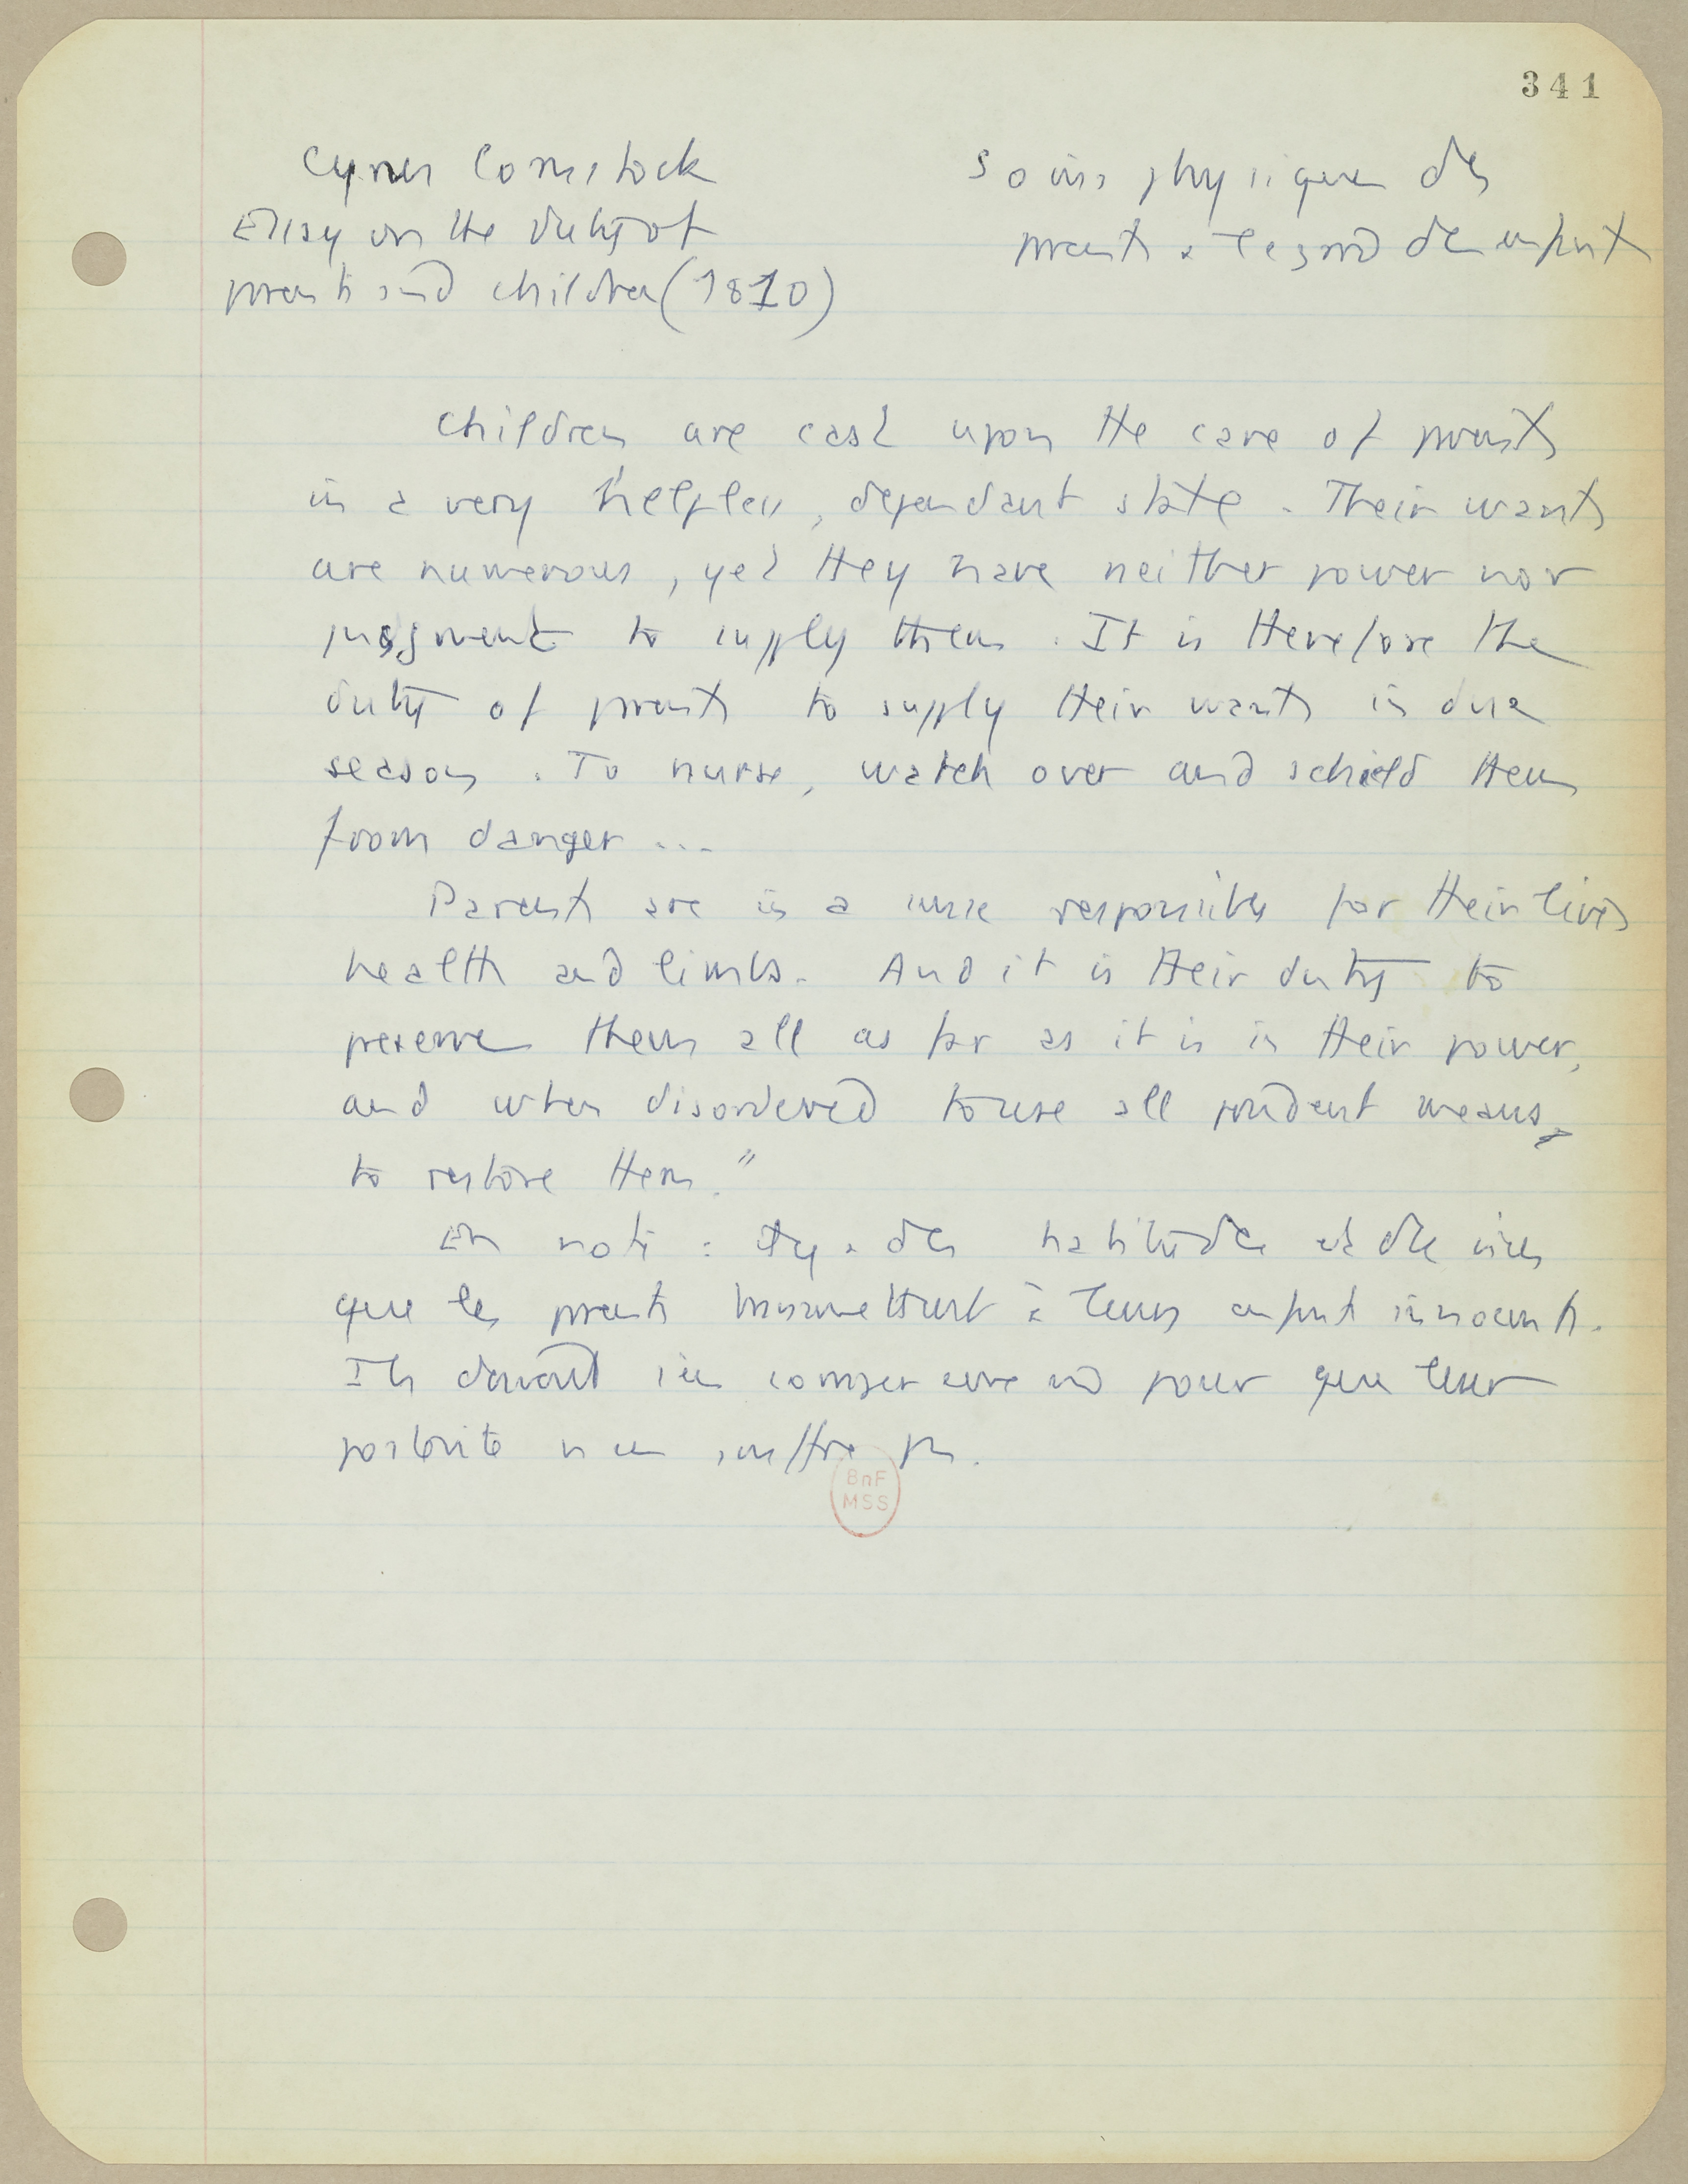 341
Cyrus Comstock
Essay on the duty of
parents and children (1810)
Soins physiques des
parents à l'égard des enfants
Children are cast upon the care of parents
in a very helpless, dependant state. Their wants
are numerous, yet they have neither power nor
judgment to supply them. It is therefore the
duty of parents to supply their wants in due
season. To nurse, watch over and schield them
from danger ...
Parents are in a sense responsible for their lives
health and limbs. And it is their duty to
preserve them all as far as it is in their power,
and when disordered to use all prudent means,
to restore them."
En note : il y a des habitudes et des vices
que les parents transmettent à leurs enfants innocents.
Ils devraient s'en corriger pour que leur
postérité n'en souffre pas.
BnF
MSS